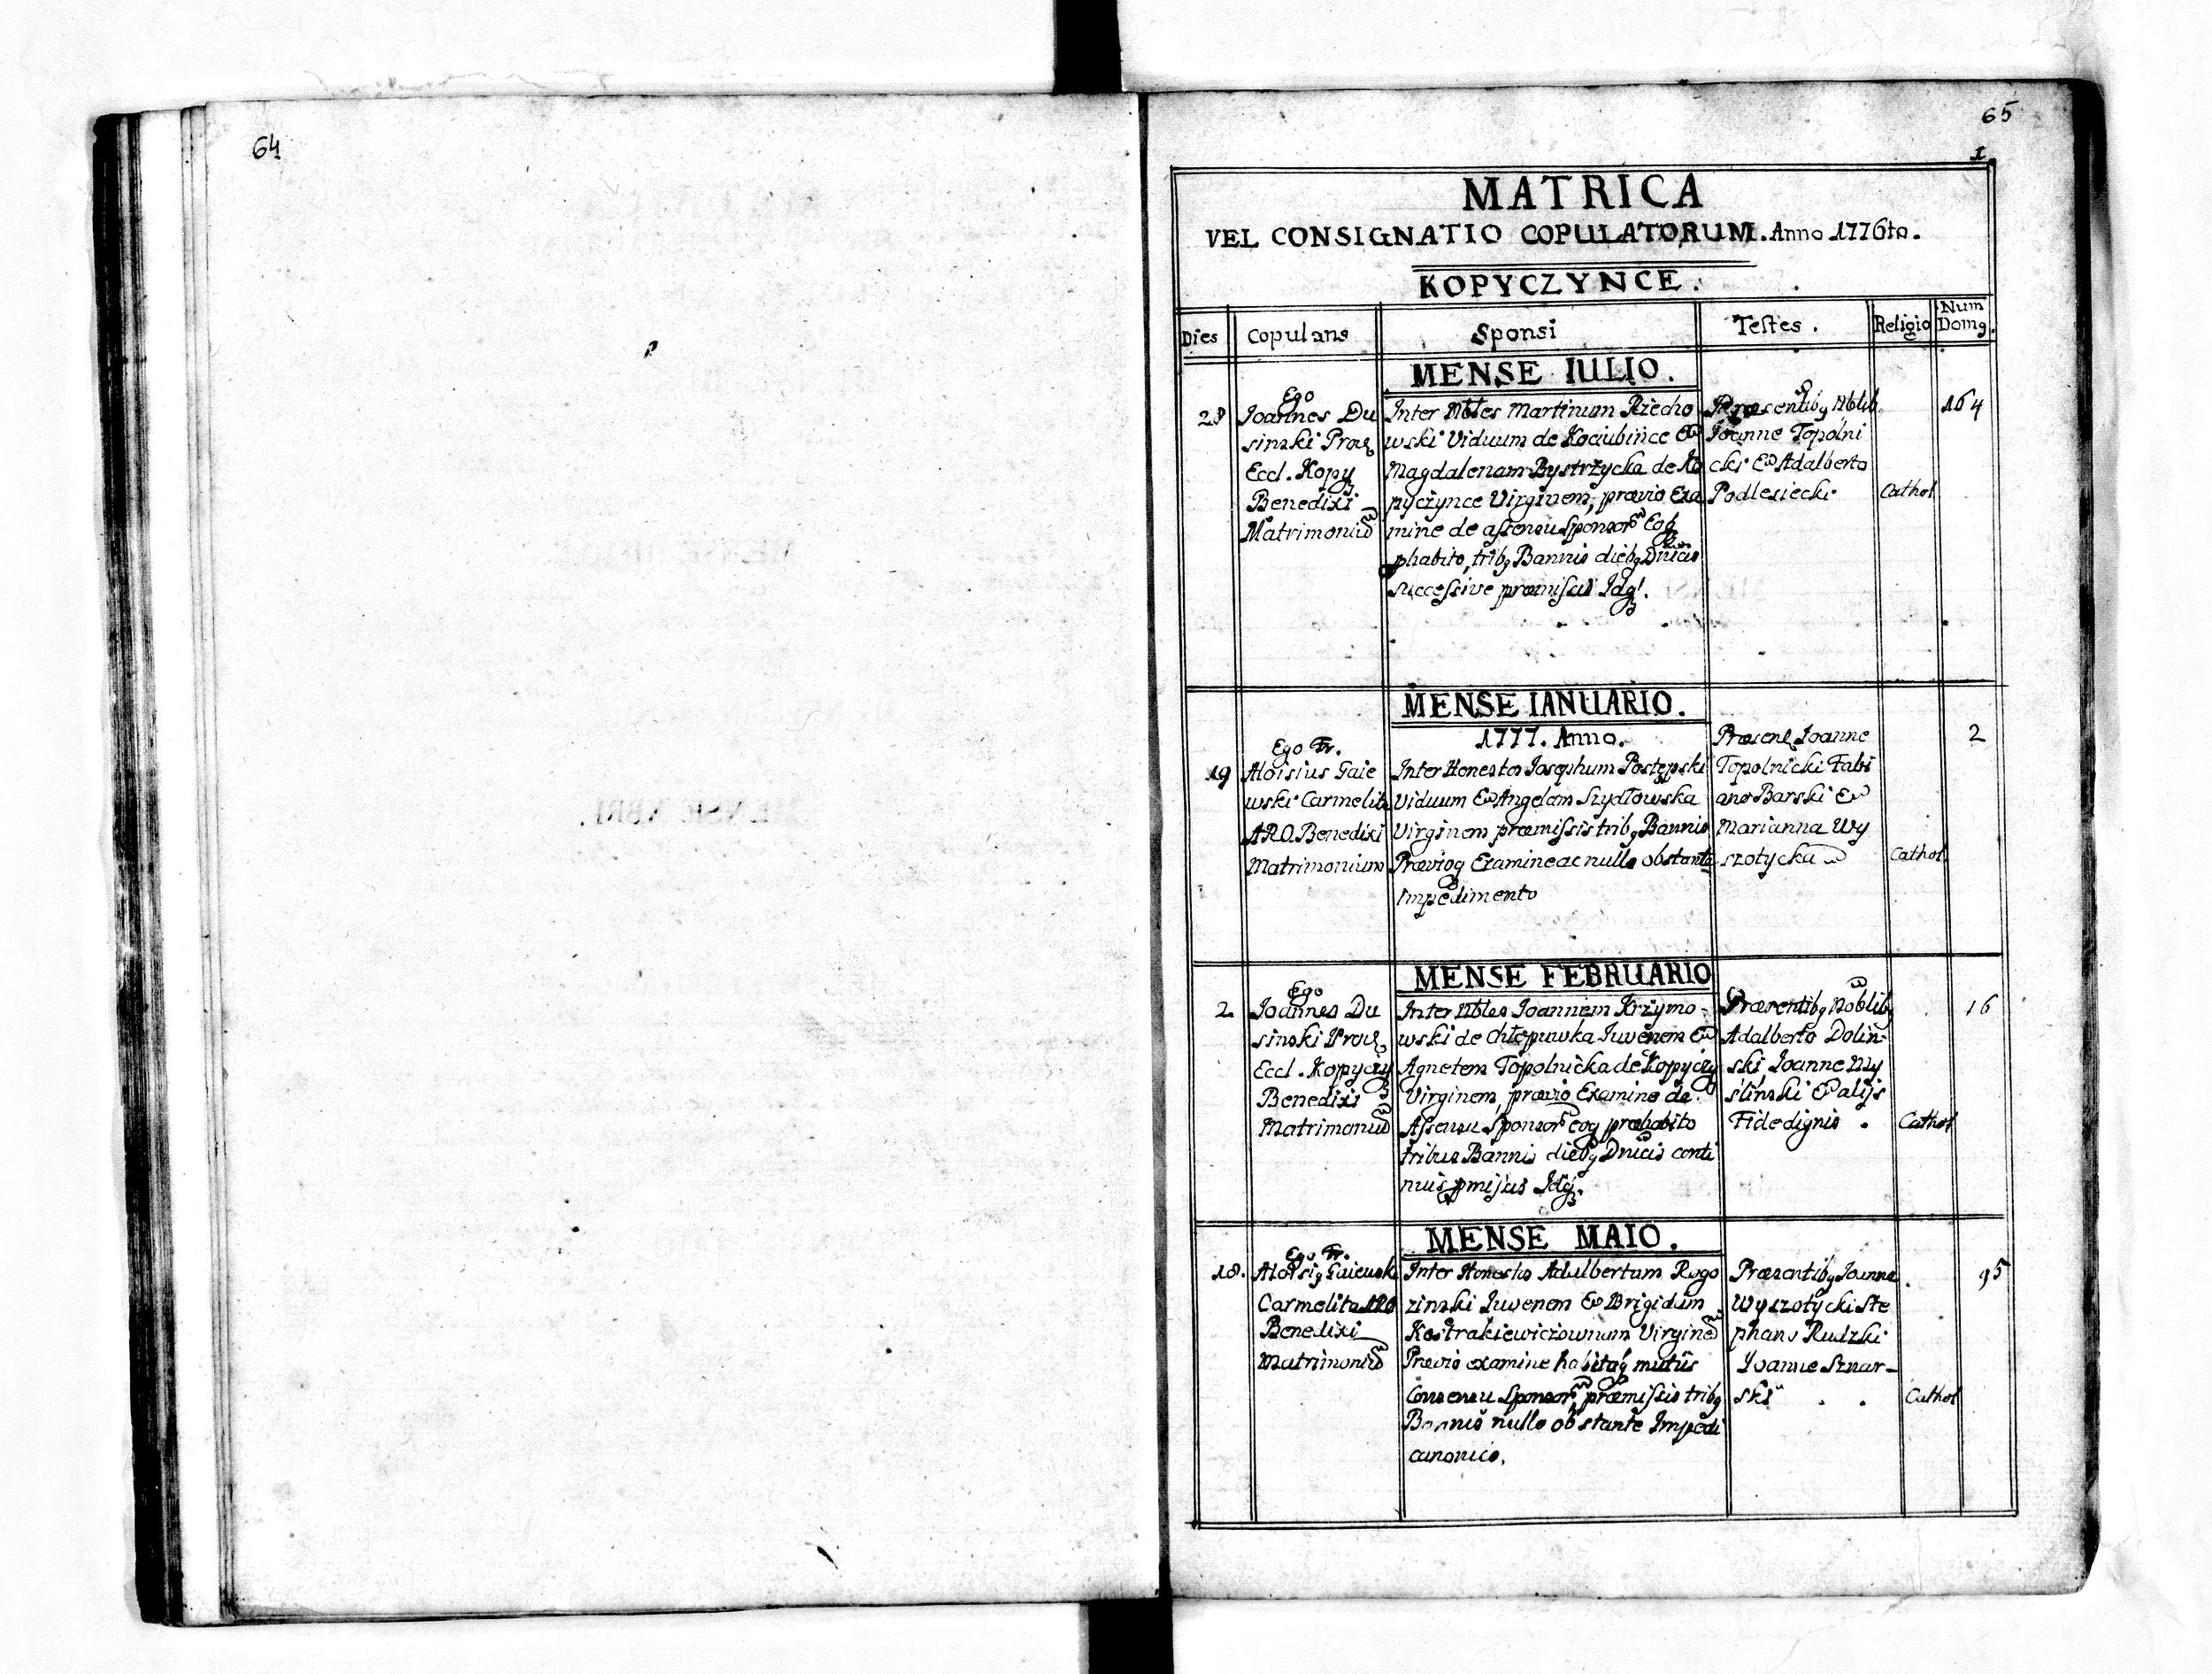 64
65
1.
MATRICA
VEL CONSIGNATIO COPULATORUM. Anno 1776to.
KOPYCZYNCE.
Dies
Copulans
Sponsi
Testes.
Religio
Num
Domq.
MENSE IULIO.
28
Ego
Joannes Du
sinski
Eccl. Kopy
Benedixi
Matrimoniu
Inter Nbles Martinum Rzecho
wski Viduum de Kociubince &
Magdalenam Bystrzycka de Ko
pyczynce Virginem, prævio Exa
mine de assensu Sponsor
phabito, tribq Bannis diebq Dnicis
successive præmissis Idq.
Præsentibq Nblib
Joanne Topolni
cki & Adalberto
Podlesiecki
Cathol
164
MENSE IANUARIO.
1777. Anno.
19
Ego Fr.
Aloisius Gaie
wski Carmelita
ARO. Benedixi
Matrimonium
Inter Honestos Josephum Postępski
Viduum & Angelam Szydłowska
Virginem præmissis tribq Bannis
Prævioq Examine ac nullo obstante
Impedimento
Præsent Joanne
Topolnicki Fabi
ano Barski &
Marianna Wy
szotycka
Cathol
2
MENSE FEBRUARIO
2
Ego
Joannes Du
sinski
Eccl. Kopyczy
Benedixi
Matrimoniu
Inter Nbles Joannem Krzymo-
wski de Chłopuwka Juvenem &
Agnetem Topolnicka de Kopyczy
Virginem, prævio Examine de
Assensu Sponsor eoq præhabito
tribus Bannis diebq Dnicis conti
nuis pmissis Idq.
Præsentibq Noblibq
Adalberto Dolin-
ski Joanne My
slinski & alijs
Fidedignis.
Cathol
16
MENSE MAIO.
18.
Ego Fr.
Aloisiq Gaiewski
Carmelita ARO
Benedixi
Matrimoniu
Inter Honestos Adalbertum Rogo
zinski Juvenem & Brigidam
Kostrakiewiczownam Virgine
Prævio examine habitoq mutuo
Consensu Sponsor, præmissis tribq
Bannis nullo obstante Impedi
canonico.
Præsentibq Joanne
Wyszotycki Ste
phano Rudzki
Joanne Sznar-
ski
Cathol
95